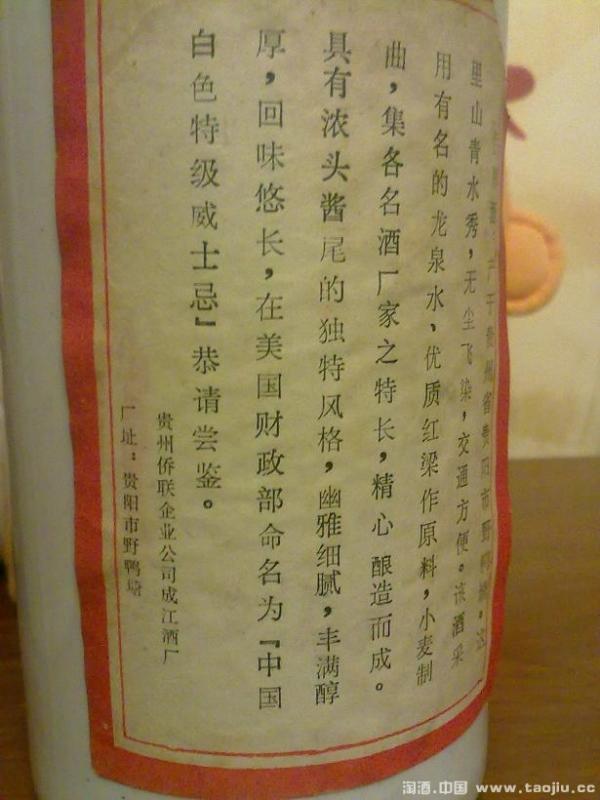 产于贵州省贵阳市野鸭塘。这
里山青水秀，无尘飞染，交通方便。该酒采
用有名的龙泉水、优质红梁作原料，小麦制
曲，集各名酒厂家之特长，精心酿造而成。
具有浓头酱尾的独特风格，幽雅细腻，丰满醇
厚，回味悠长，在美国财政部命名为『中国
白色特级威士忌』恭请尝鉴。
贵州侨联企业公司成江酒厂
厂址：贵阳市野鸭塘
淘酒.中国 www.taojiu.cc